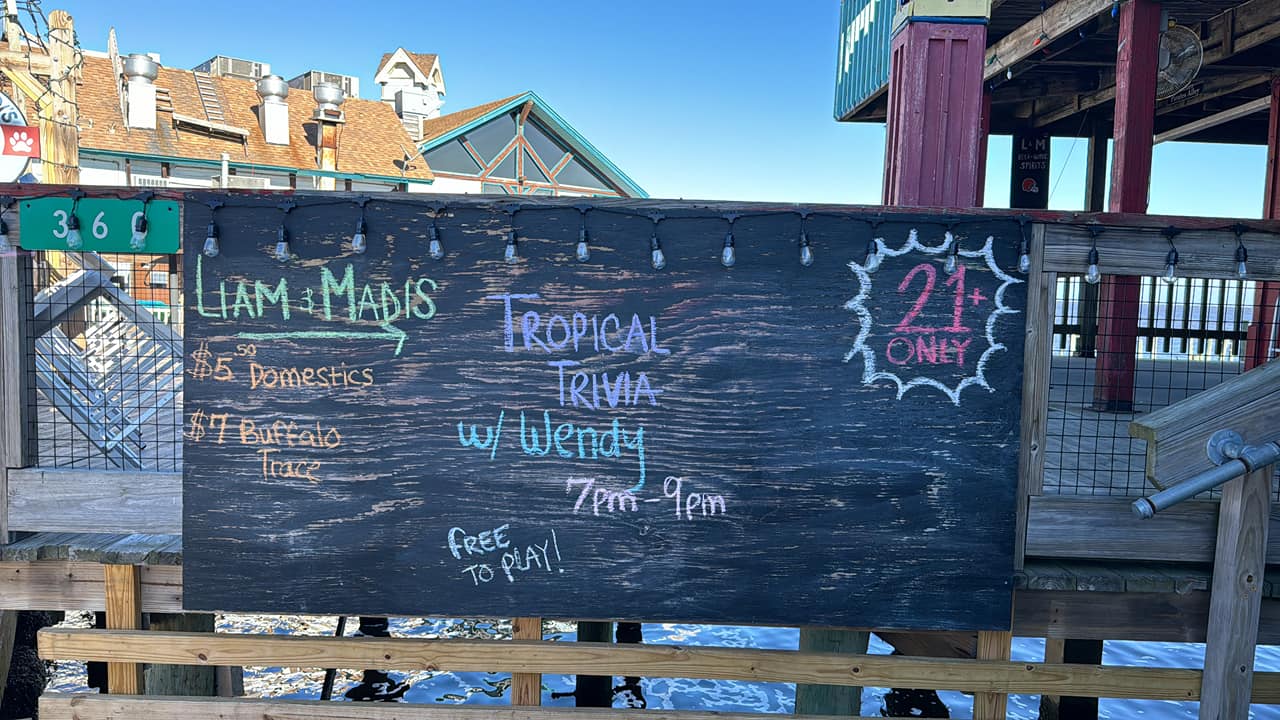 360
LIAM & MADIS
$5.50 DOMESTICS
$7 Buffalo
Trace
TROPICAL
TRIVIA
w/ Wendy
7pm-9pm
FREE
TO PLAY!
21+
ONLY
L & M
BEER·WINE
SPIRITS